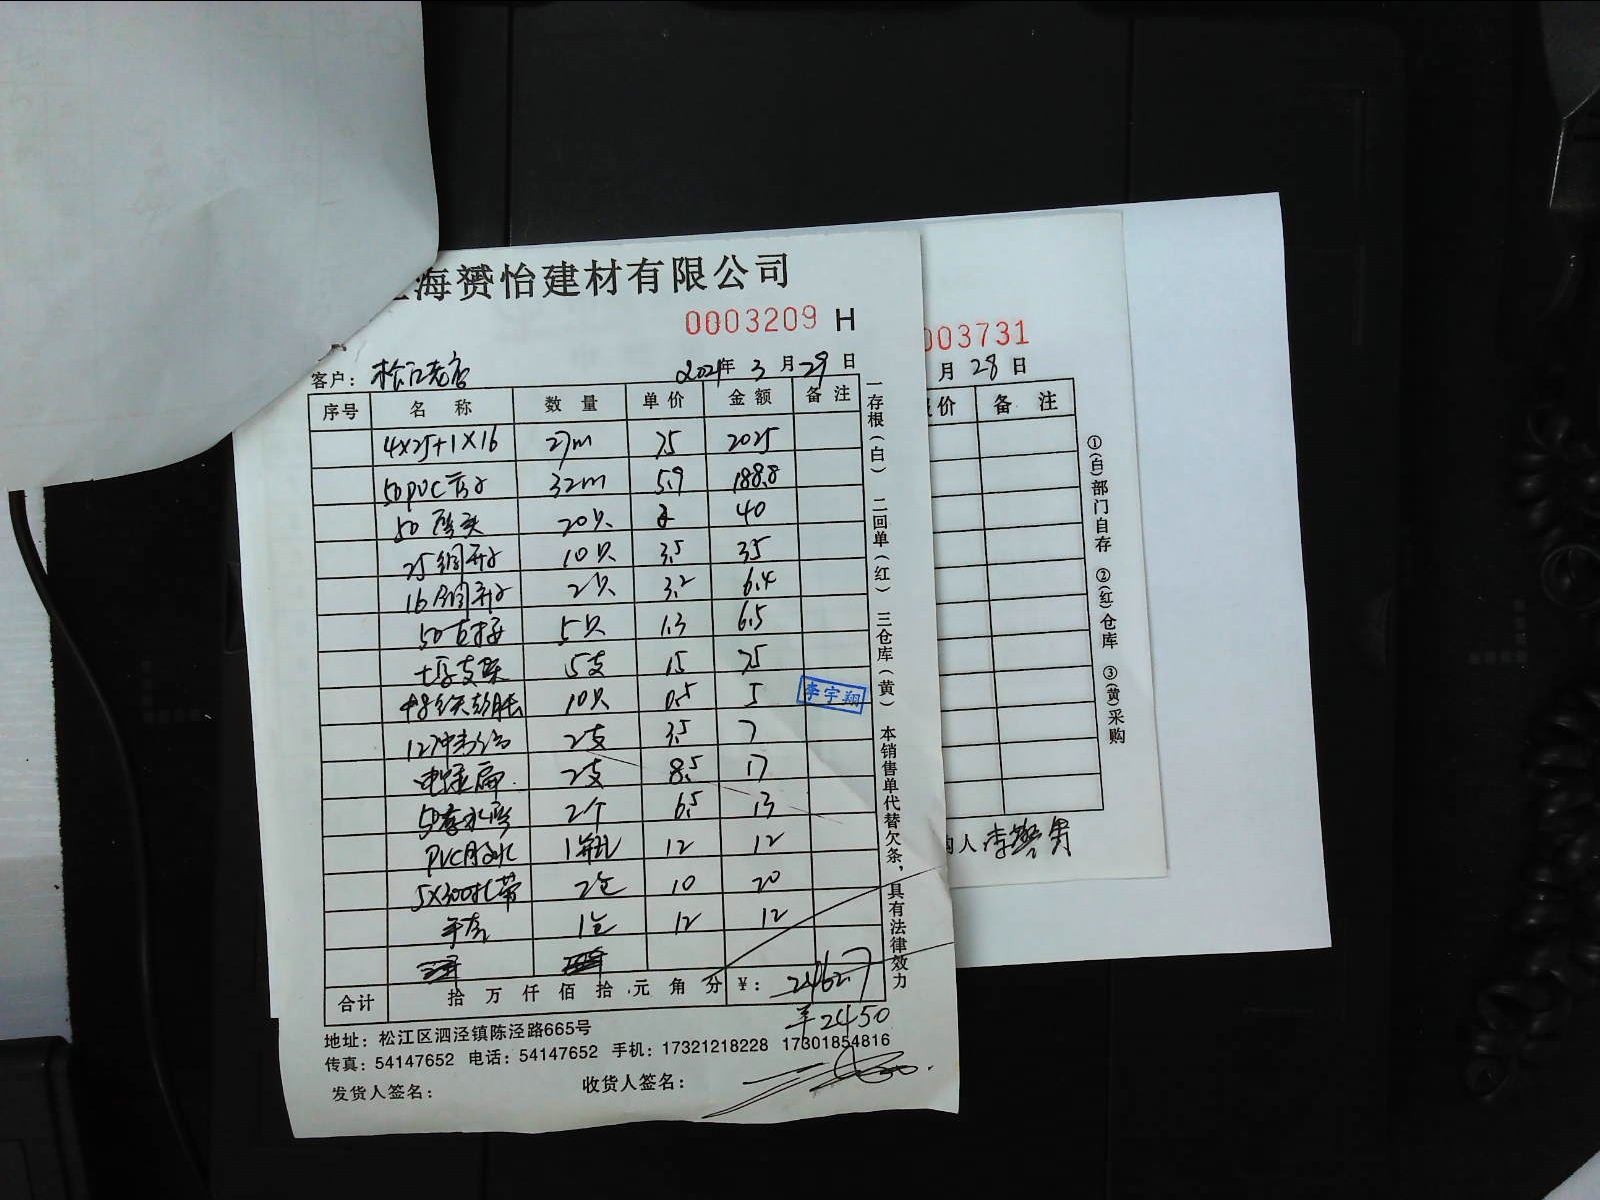 海赟怡建材有限公司
0003209 H
客户： 松江老店 2021年 3 月 29 日
序号 名 称 数 量 单 价 金 额 备 注
4×25+1×16 27m 75 2025
50PVC管子 32m 5.9 188.8
50 20只 2 40
25铜鼻子 10只 3.5 35
16铜鼻子 2只 3.2 6.4
50直接 5只 1.3 6.5
支架 5支 15 75
10只 0.5 5
李宇翔
12冲击钻 2支 3.5 7
2支 8.5 17
50存水弯 2个 6.5 13
PVC胶水 1瓶 12 12
5×300扎带 2包 10 20
手套 1包 12 12
合计 拾 万 仟 佰 拾 元 角 分 ¥： 2462.7
¥2450
地址：松江区泗泾镇陈泾路665号
传真：54147652 电话：54147652 手机：17321218228 17301854816
发货人签名： 收货人签名：
一存根（白） 二回单（红） 三仓库（黄） 本销售单代替欠条，具有法律效力
003731
月 28 日
价 备 注
①(白)部门自存 ②(红)仓库 ③(黄)采购
人 李